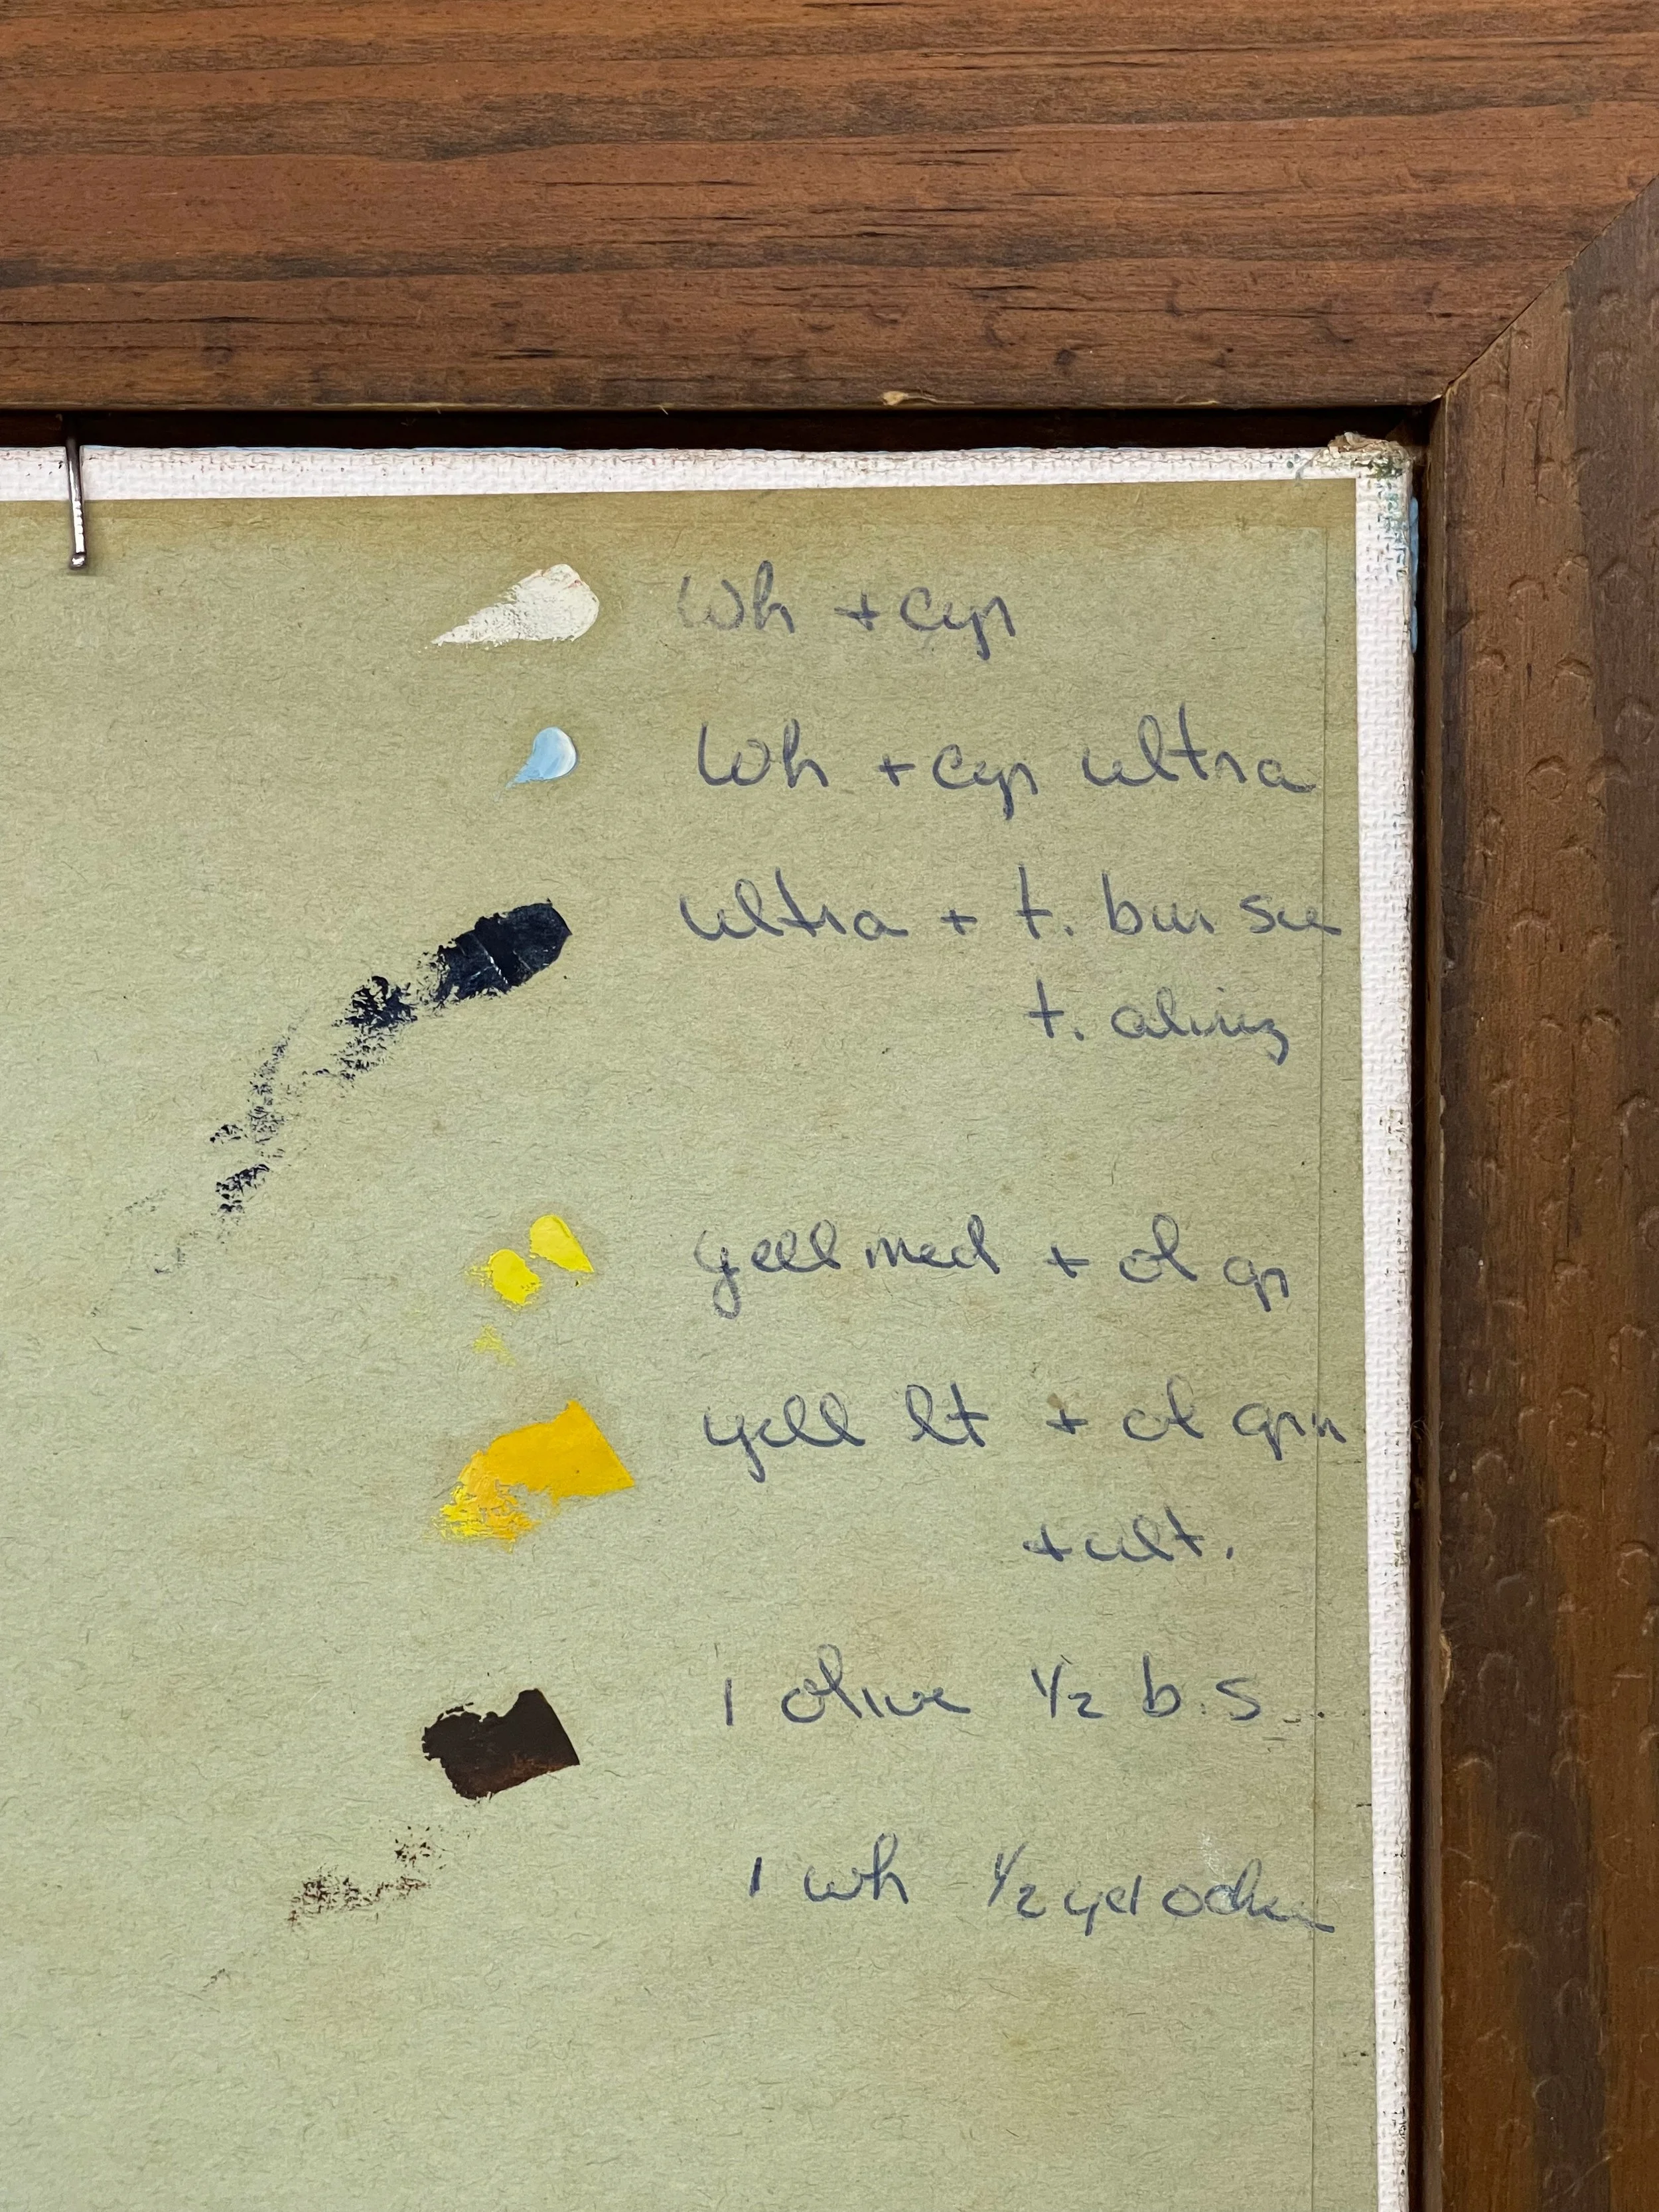 Wh + Cyr
Wh + Cyr ultra
ultra + t. bur sie
t. aliriz
yell med + ol gr
yell lt + ol grn
+ ult.
1 olive 1/2 b.s
1 wh 1/2 yel ocher